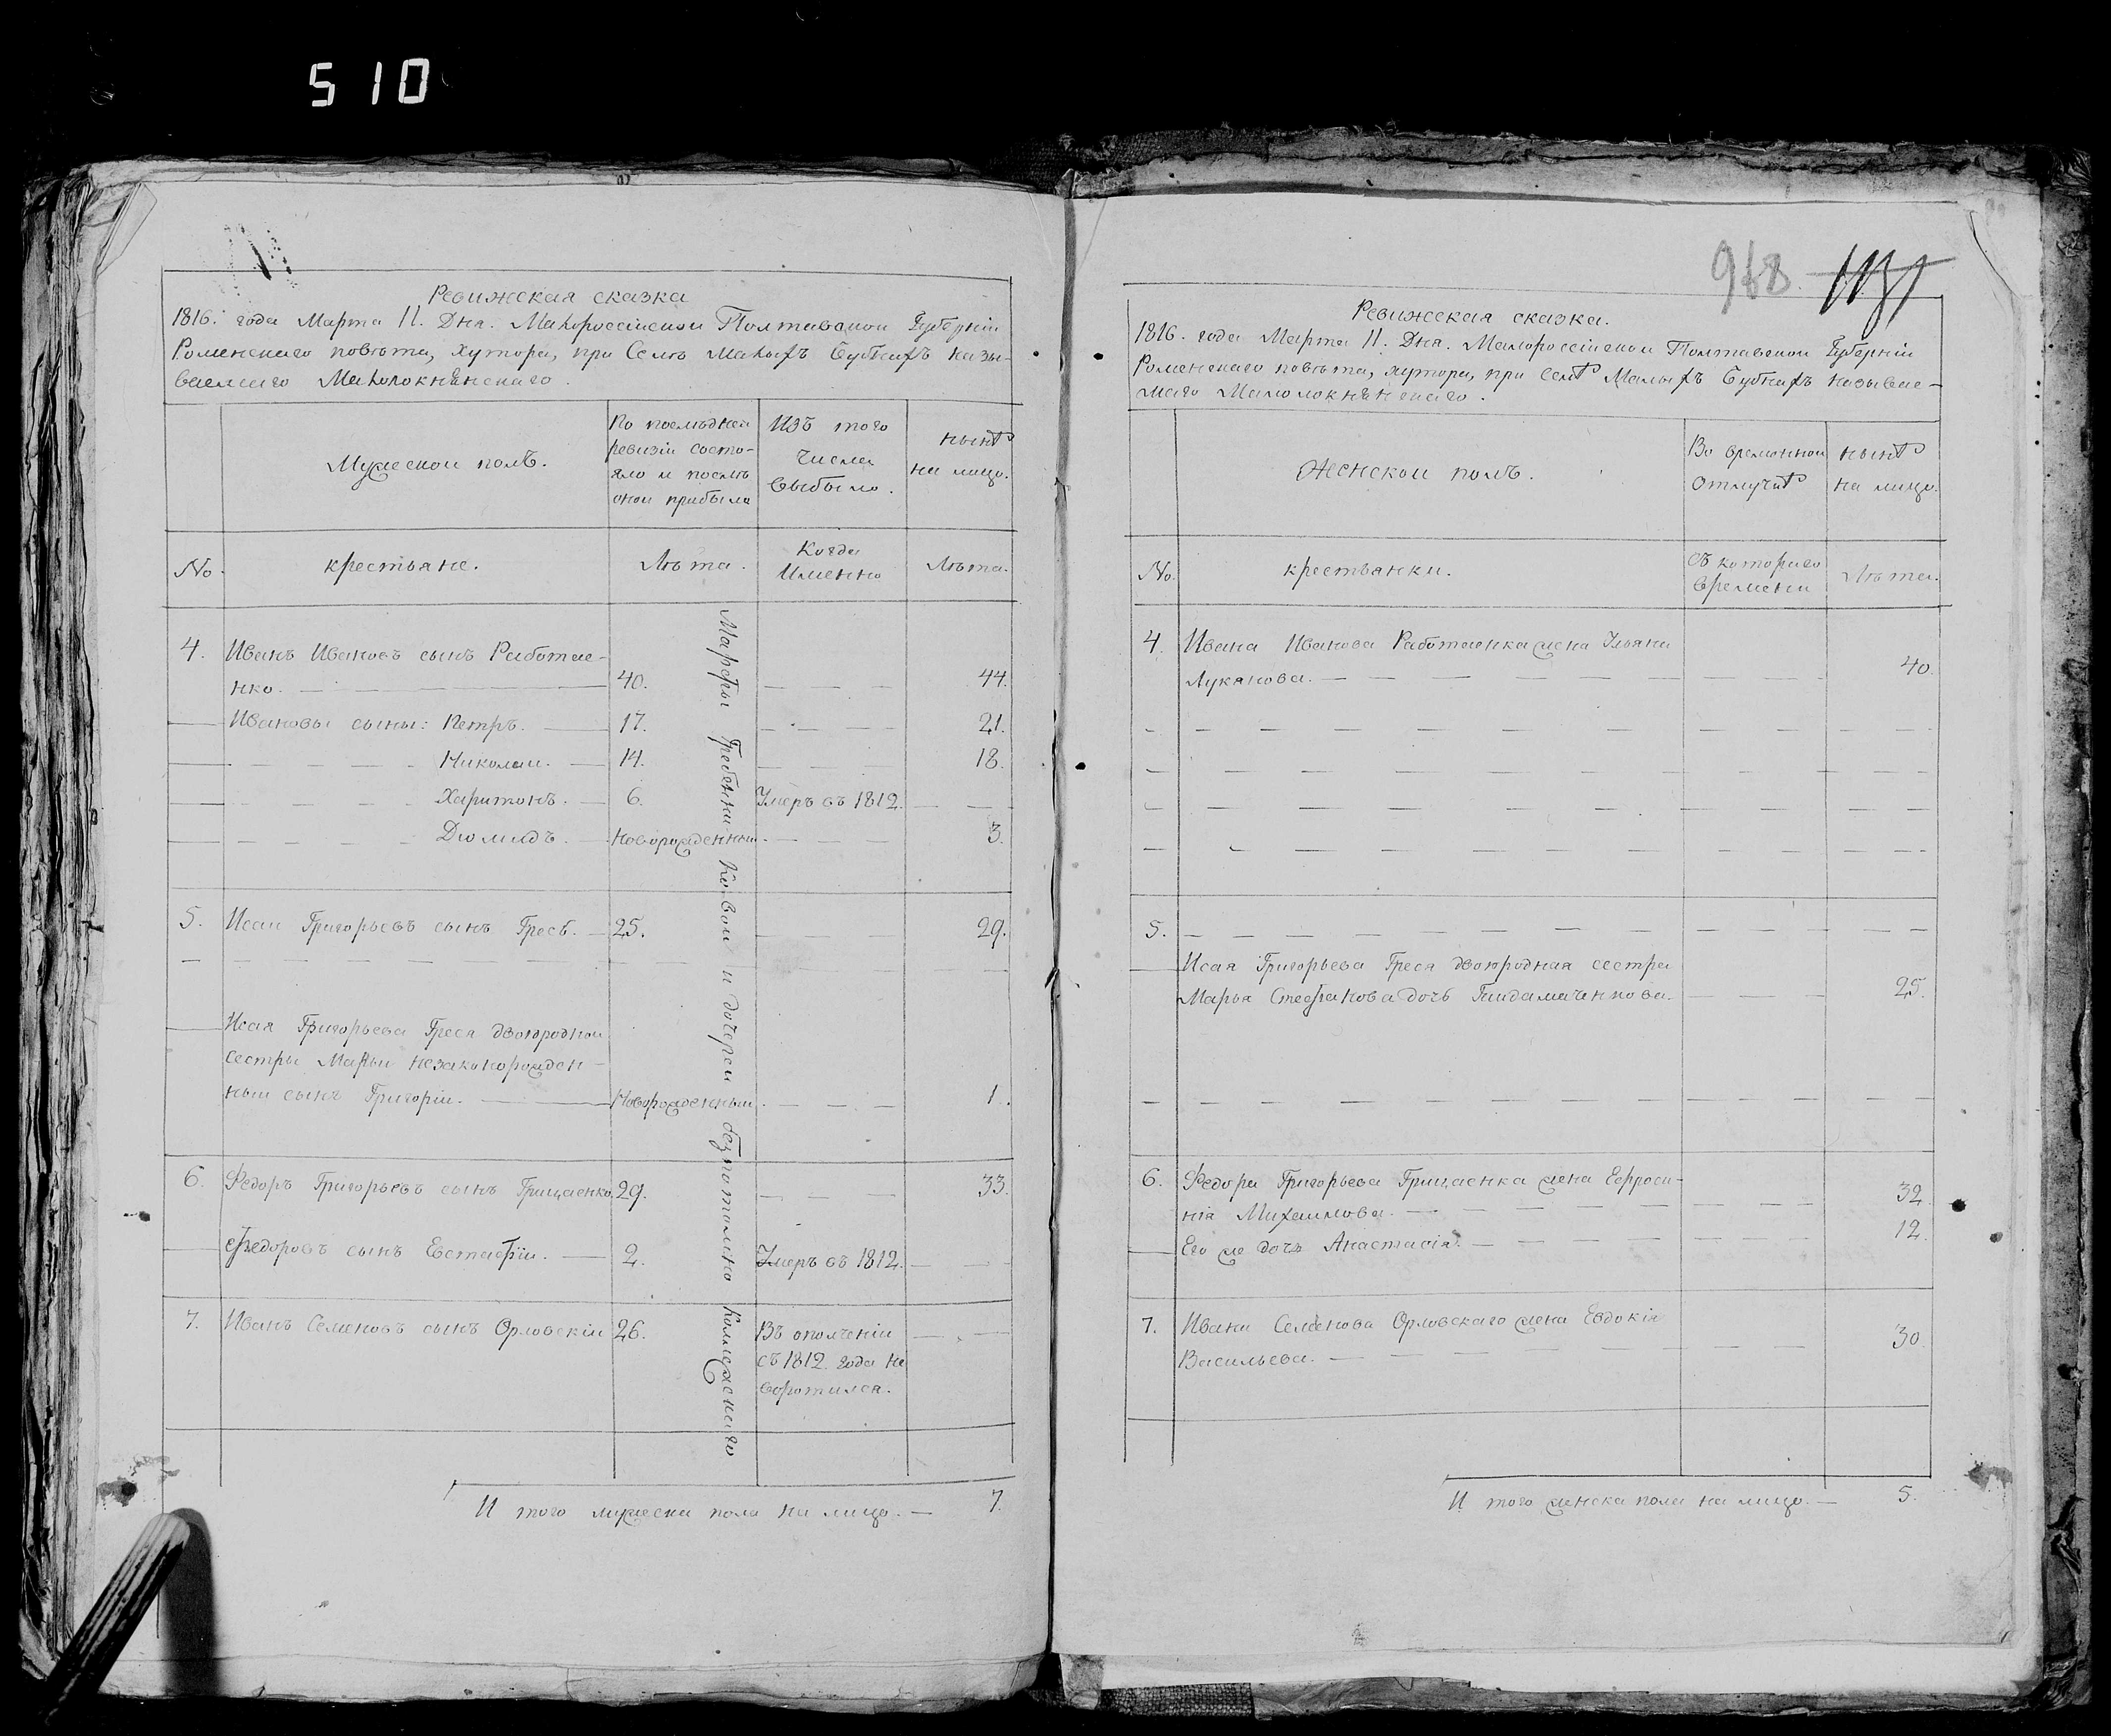 510
Ревижская сказка
1816. года Марта 11. Дня. Малороссійской Полтавской Губерніи
Роменскаго повѣта, хутора, при Селѣ Малыхъ Бубнахъ назы-
ваемаго
Мужеской полъ.
По послѣдней
ревизіи состо-
яло и послѣ
оной прибыло
Изъ того
числа
выбыло.
нынѣ
на лицо.
No.
крестьяне.
Лѣта.
Когда
Именно
Лѣта.
4. Иванъ Ивановъ сынъ Работае-
нко. — 40. — — — 44.
Ивановы сыны: Петръ. — 17. — — — 21.
— — — Николай. — 14. — — — 18.
— — — Харитонъ. — 6. Умеръ въ 1812. — —
— — — Диомидъ. — Новорожденный. — — — 3.
5. Исаи Григорьевъ сынъ Гресь. — 25. — — — 29.
Исая Григорьева Греся двоюродной
сестры Марьи незаконорожден-
ный сынъ Григорій. — Новорожденный. — — — 1.
6. Федоръ Григорьевъ сынъ Грицаенко. 29. — — — 33.
Федоровъ сынъ Евстафій. — 2. Умеръ въ 1812. — —
7. Иванъ Семеновъ сынъ Орловскій 26. Въ ополченіи — —
съ 1812. года не
воротился.
И того мужеска пола на лицо. — 7.
Марфы и дочерей
968.
Ревижская сказка.
1816. года Марта 11. Дня. Малороссійской Полтавской Губерніи
Роменскаго повѣта, хутора, при Селѣ Малыхъ Бубнахъ называе-
маго
Женской полъ.
Во временной
отлучкѣ
нынѣ
на лицо.
No.
крестьянки.
съ котораго
времени
Лѣта.
4. Ивана Иванова Работаенка жена Ульяна
Лукянова. — — — 40.
5. — — —
Исая Григорьева Греся двоюродная сестра
Марья Стефанова дочь Гайдамаченкова. — — — 25.
6. Федора Григорьева Грицаенка жена Ефроси-
нія Михайлова. — — — 32.
Его же дочь Анастасія. — — — 12.
7. Ивана Семенова Орловскаго жена Евдокія
Васильева. — — — 30.
И того женска пола на лицо. — 5.